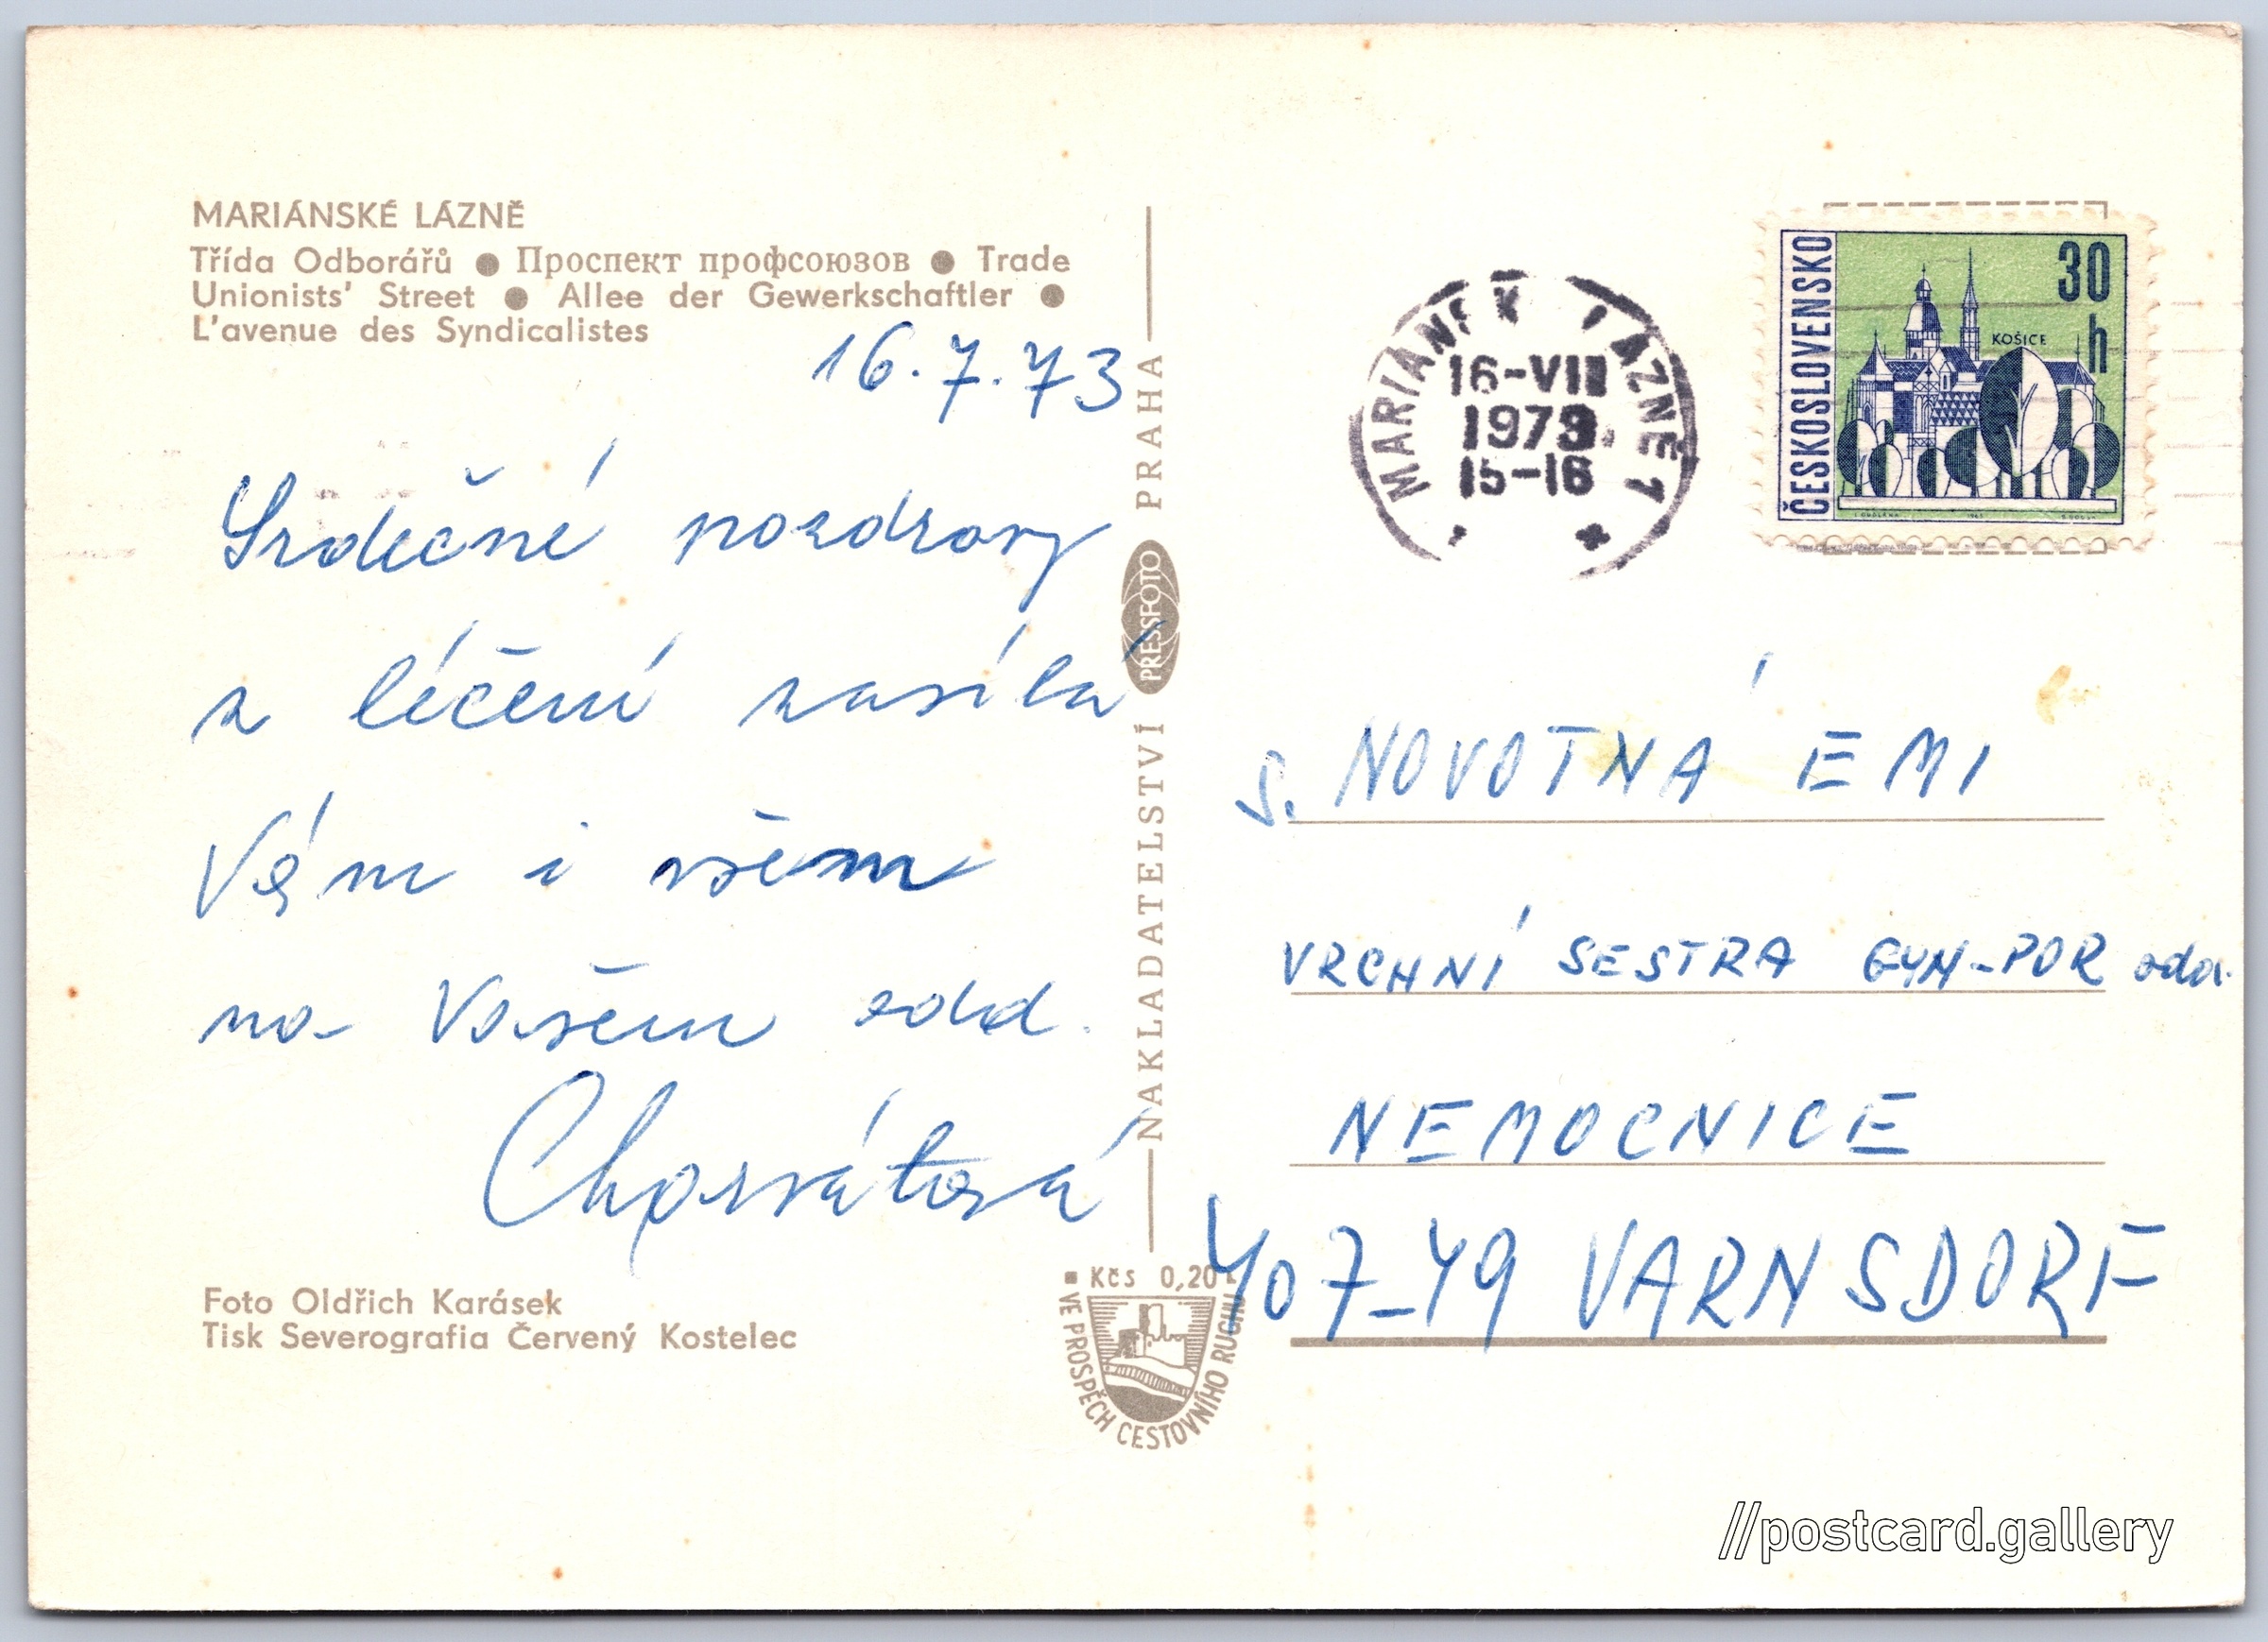 MARIÁNSKÉ LÁZNĚ
Třída Odborářů ● Проспект профсоюзов ● Trade
Unionists' Street ● Allee der Gewerkschaftler ●
L'avenue des Syndicalistes
16.7.73
Srdečné pozdravy
z léčení zasílá
Vám i všem
na Vašem odd.
Chorvátová
Foto Oldřich Karásek
Tisk Severografia Červený Kostelec
NAKLADATELSTVÍ PRESSFOTO PRAHA
Kčs 0,20
VE PROSPĚCH CESTOVNÍHO RUCHU
MARIÁNSK LÁZNĚ 1
16-VII
1973
15-16
ČESKOSLOVENSKO
30
h
KOŠICE
S. NOVOTNÁ EMI
VRCHNÍ SESTRA GYN-POR odd.
NEMOCNICE
407-49 VARNSDORF
//postcard.gallery